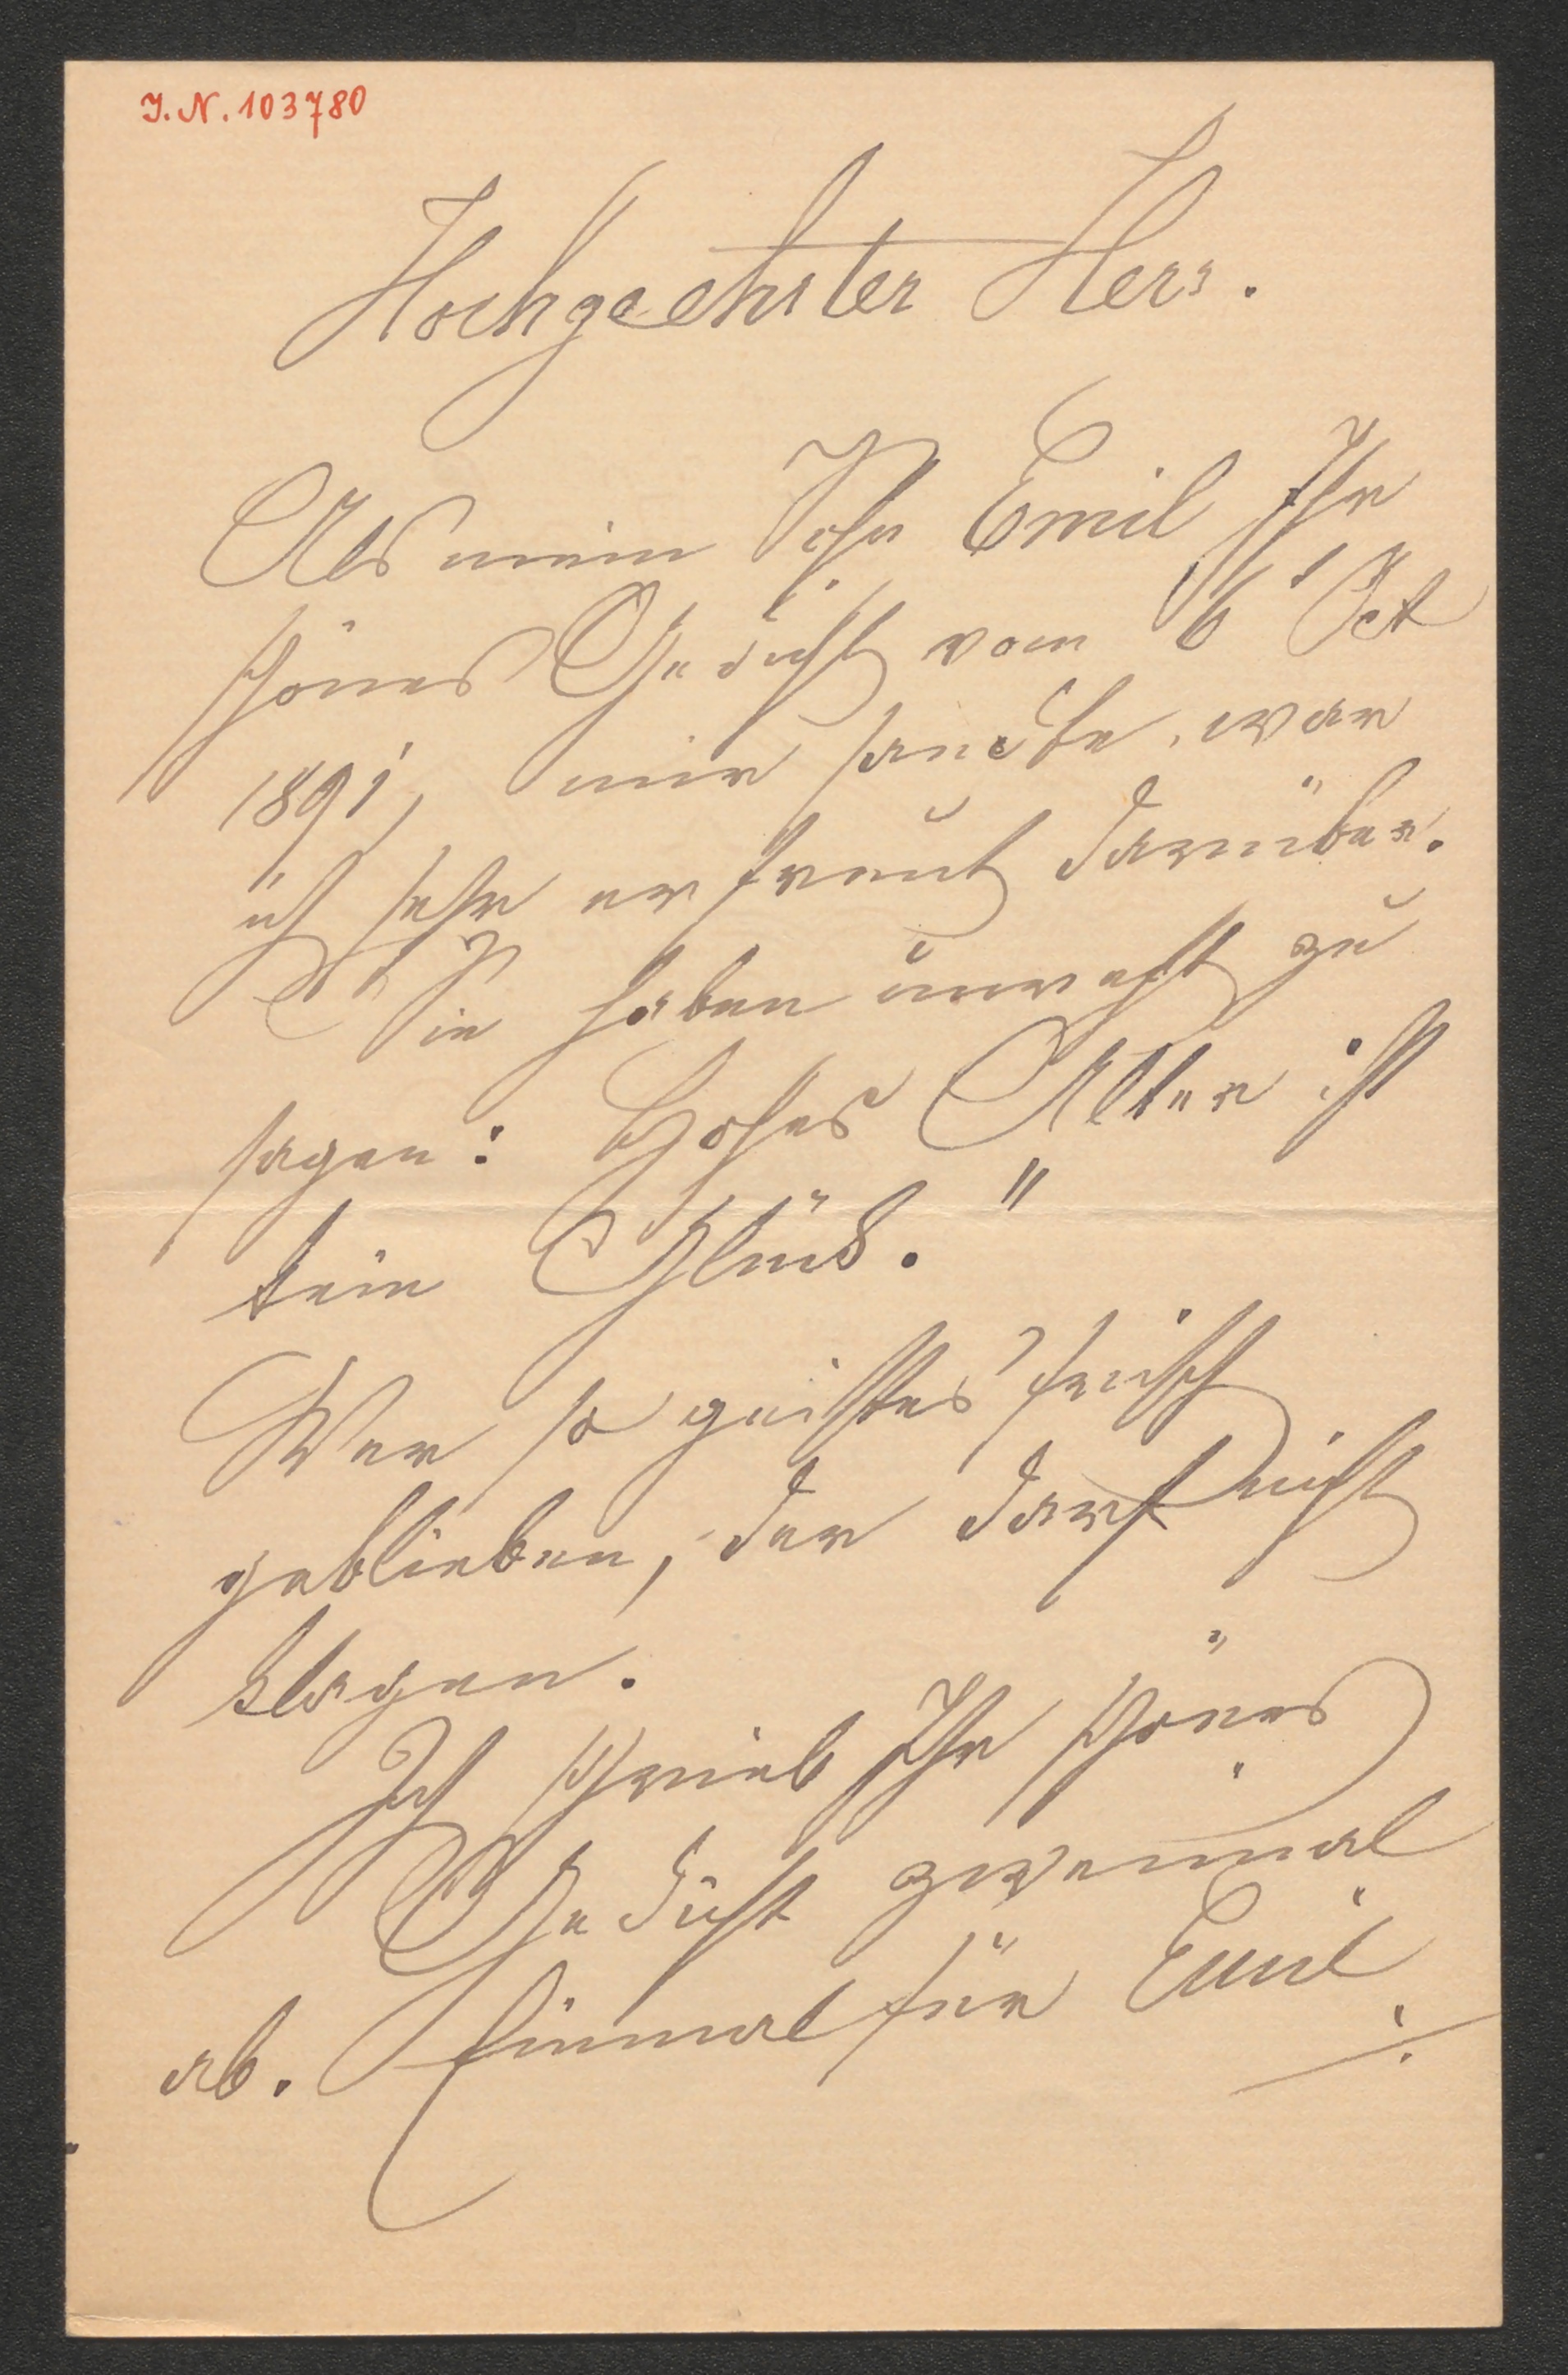 I.N. 103780
Hochgeehrter Herr.
Als mein Sohn Emil Ihr
schönes Gedicht vom 6 Oct
1891, mir sandte, war
ich sehr erfreut darüber.
Sie haben unrecht zu
sagen: Hohes Alter ist
kein Glück."
Wer so geistesfrisch
geblieben, der darf nicht
klagen.
Ich schrieb Ihr schönes
Gedicht zweimal
ab. Einmal für Emil
./.